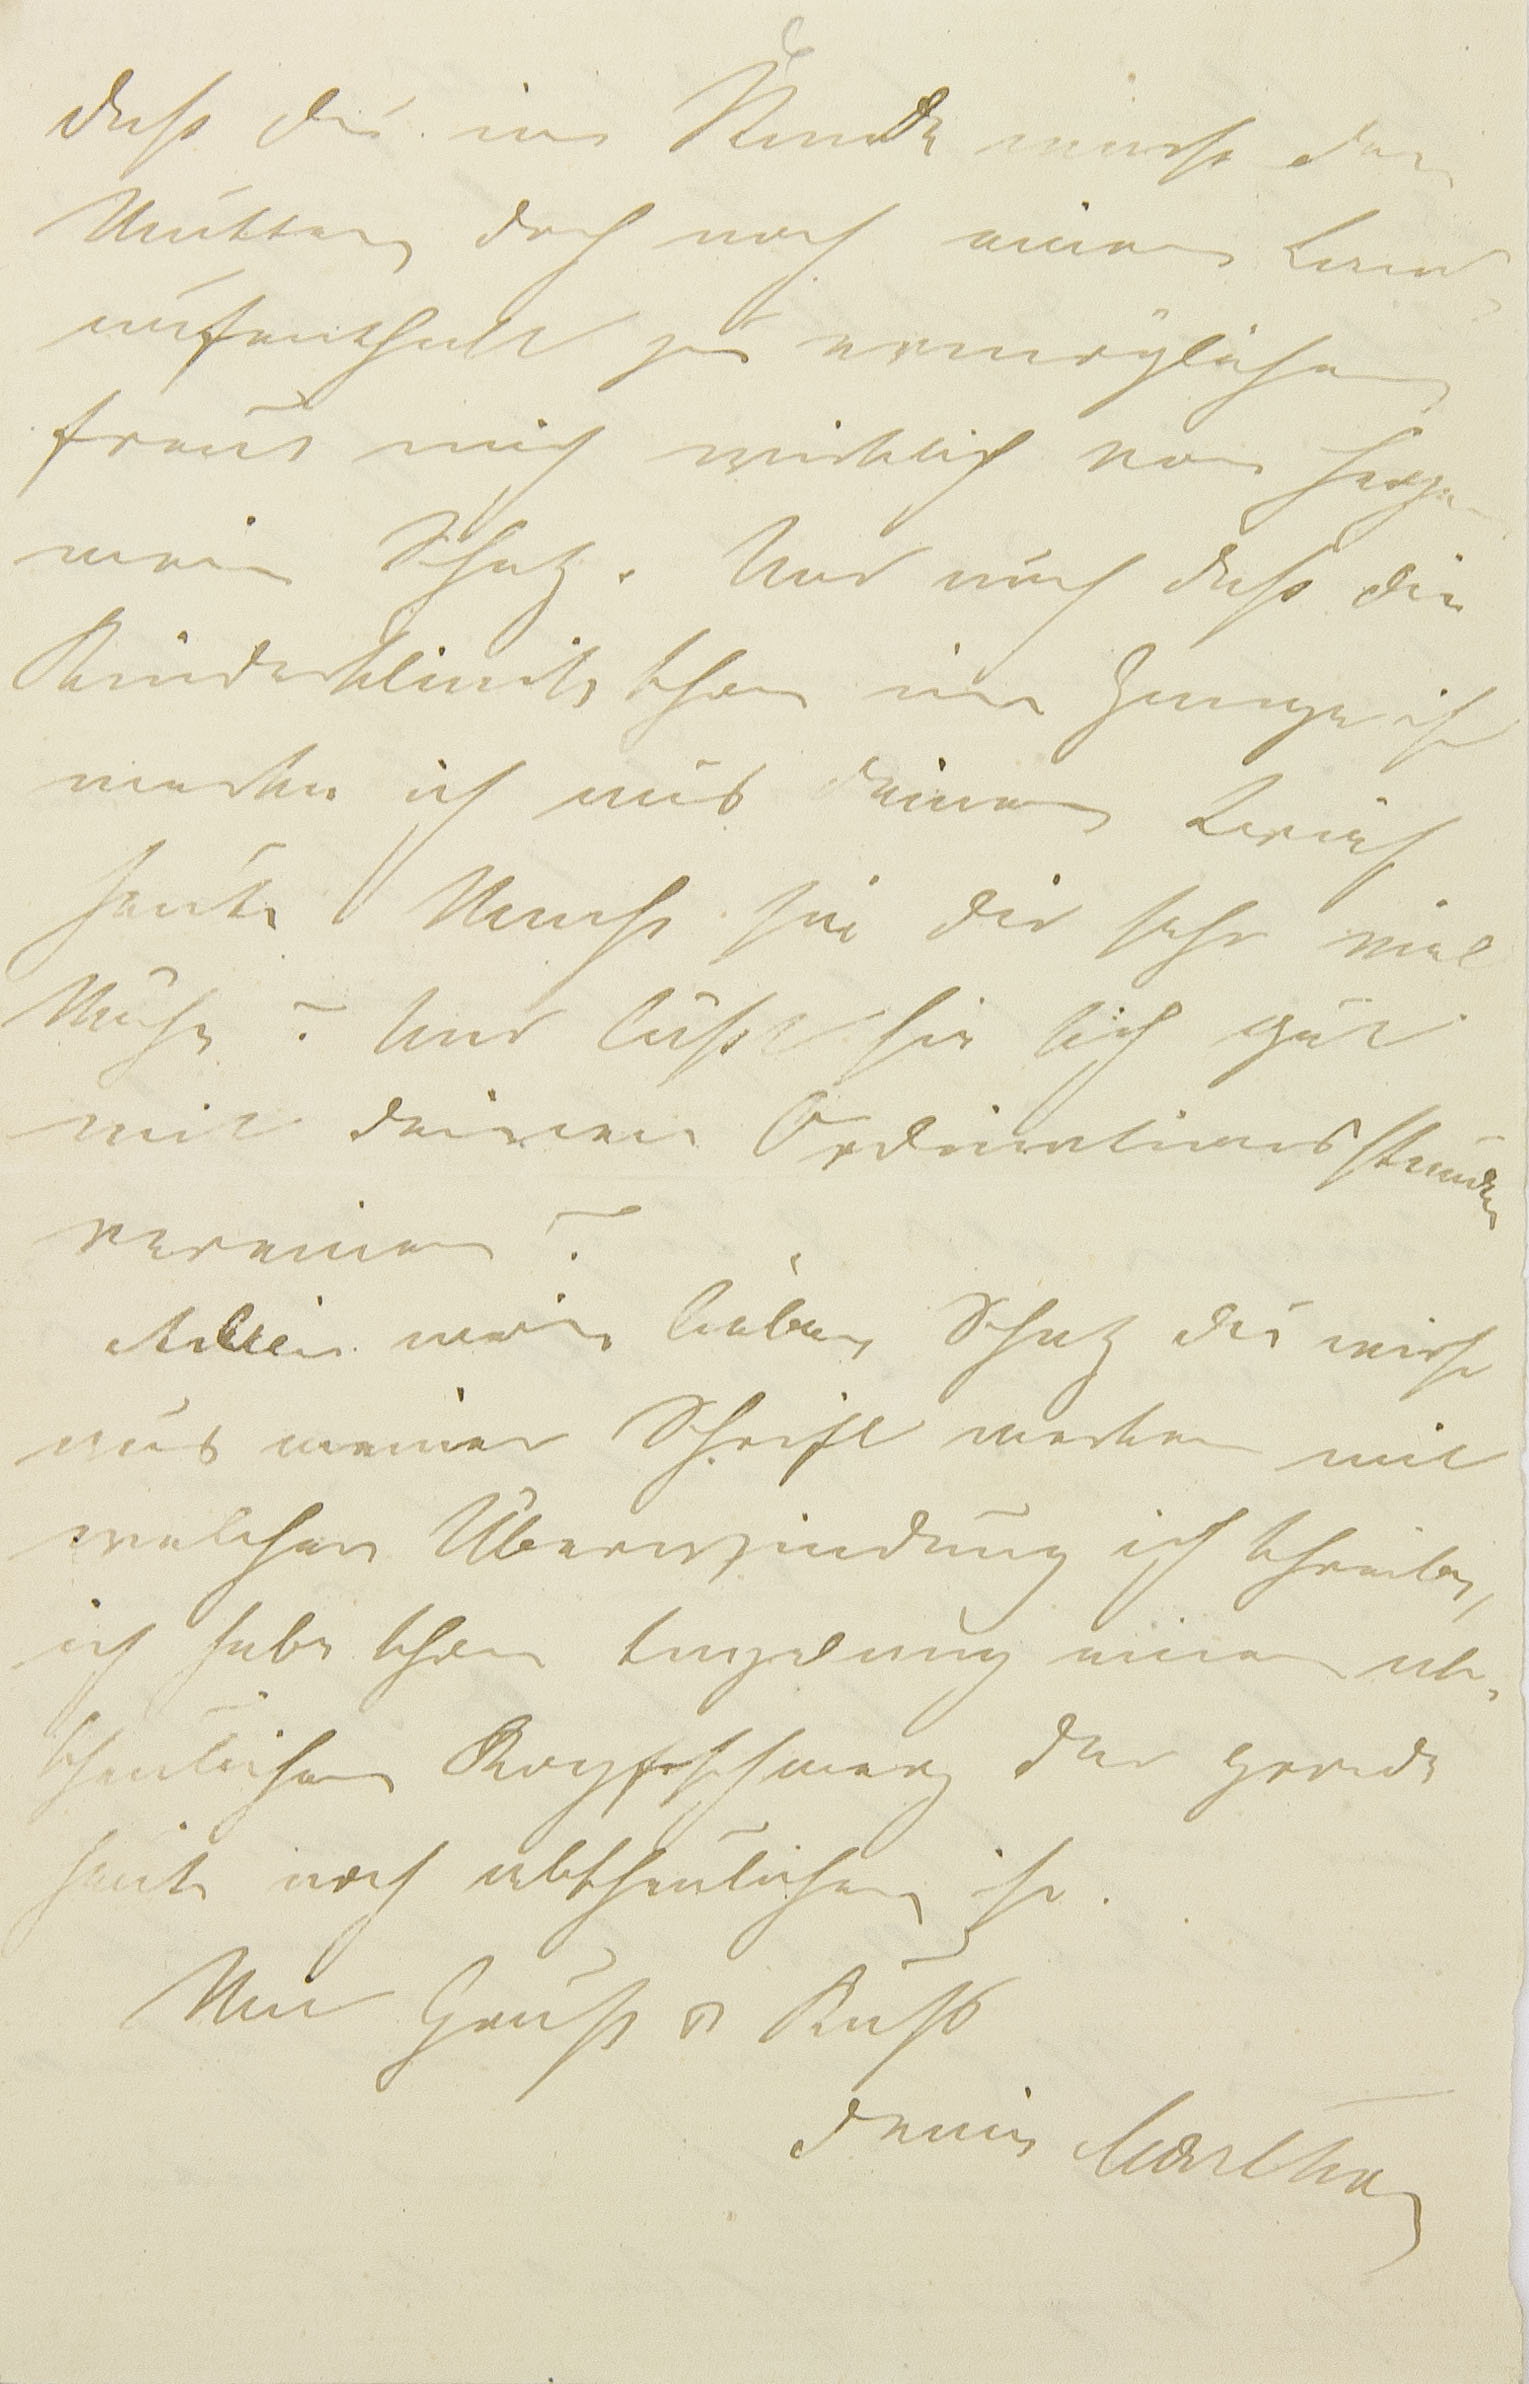 daß du im Stande warst der
Mutter doch noch einen Land-
aufenthalt zu ermöglichen
freut mich wirklich von Herzen
mein Schatz. Und auch daß die
Kinderklinik schon im Gange ist
merke ich aus deinem Bericht
heute. Macht sie dir sehr viel
Mühe? Und läßt sie sich gut
mit deinen Ordinationsstunden
vereinen?
Adieu mein lieber Schatz du wirst
aus meiner Schrift merken mit
welcher Überwindung ich schreibe,
ich habe schon einen ab-
scheulichen Kopfschmerz der gerade
heute noch abscheulicher ist.
Mit Gruß & Kuß
deine Martha